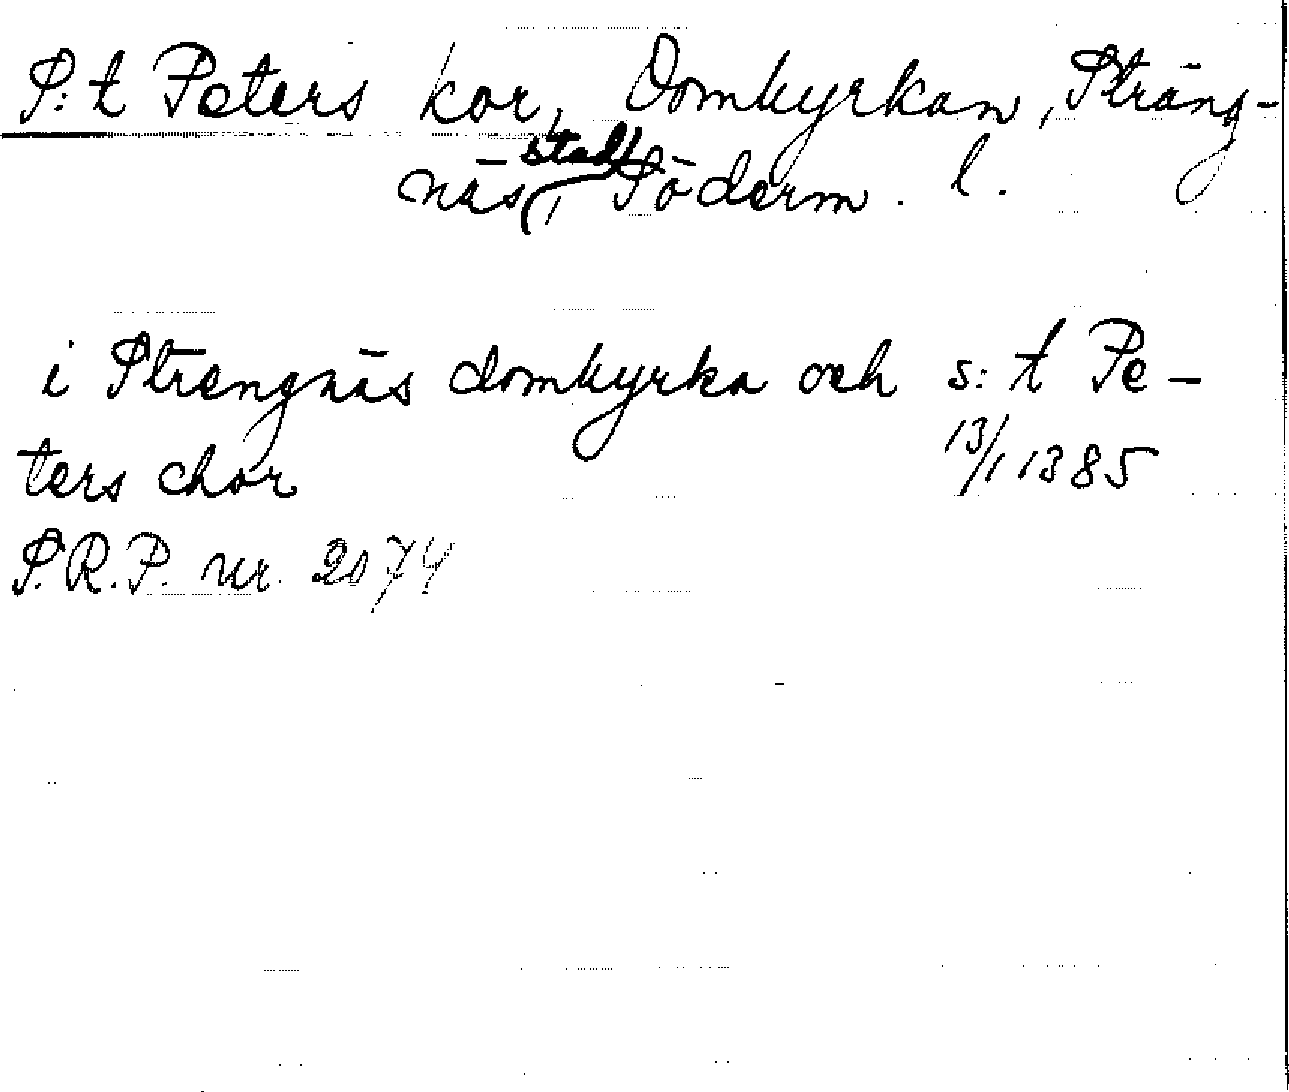 S:t Peters kor, Domkyrkan, Sträng-
näs stad, Söderm. l.
i Strengnäs domkyrka och s:t Pe-
ters chor 13/1 1385
S.R.P. nr. 2074